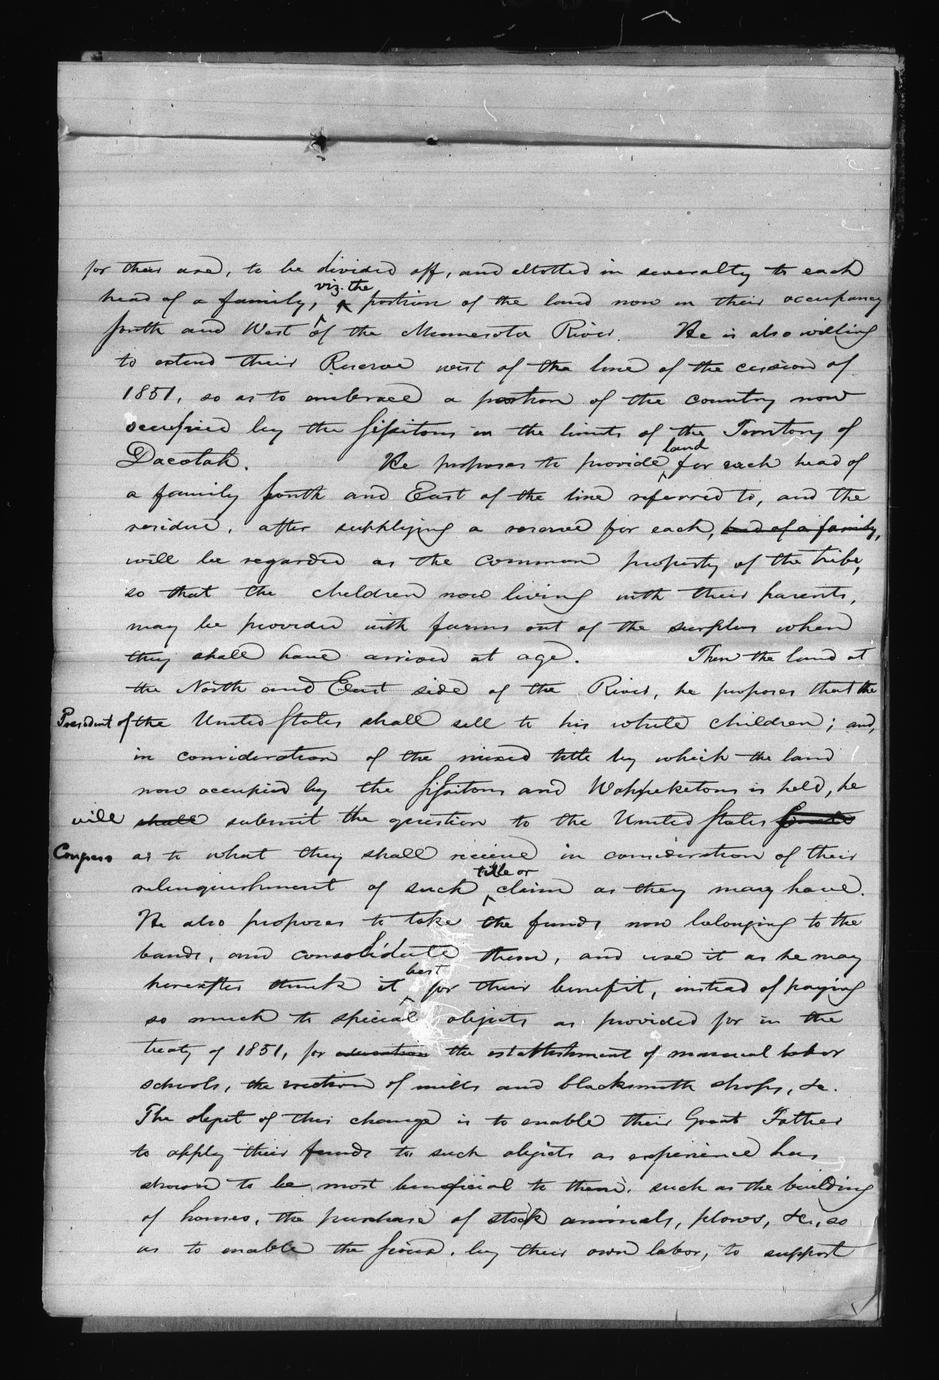 for their use, to be divided off, and allotted in severalty to each
head of a family, viz. the portion of the land now in their occupancy
South and West of the Minnesota River. He is also willing
to extend their Reserve west of the line of the cession of
1851, so as to embrace a portion of the country now
occupied by the Sissitons in the limits of the Territory of
Dacotah. He proposes to provide land for each head of
a family South and East of the line referred to, and the
residue, after supplying a reserve for each, head of a family,
will be regarded as the common property of the tribe,
so that the children now living with their parents,
may be provided with farms out of the surplus when
they shall have arrived at age. Then the land at
the North and East side of the River, he proposes that the
President of the United States shall sell to his white children; and,
in consideration of the mixed title by which the land
now occupied by the Sissitons and Wahpeketons is held, he
will shall submit the question to the United States Senate
Congress as to what they shall receive in consideration of their
relinquishment of such title or claim as they may have.
He also proposes to take the funds now belonging to the
bands, and consolidate them, and use it as he may
hereafter think it best for their benefit, instead of paying
so much to special objects as provided for in the
treaty of 1851, for education the establishment of manual labor
schools, the erection of mills and blacksmith shops, &c.
The object of this change is to enable their Great Father
to apply their funds to such objects as experience has
shown to be most beneficial to them, such as the building
of homes, the purchase of stock animals, plows, &c., so
as to enable the Sioux, by their own labor, to support